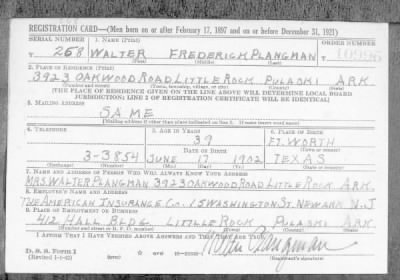 REGISTRATION CARD—(Men born on or after February 17, 1897 and on or before December 31, 1921)
SERIAL NUMBER 1. NAME (Print) ORDER NUMBER
T 258 WALTER FREDERICK PLANGMAN 10996
(First) (Middle) (Last)
2. PLACE OF RESIDENCE (Print)
3923 OAKWOOD ROAD, LITTLE ROCK PULASKI ARK
(Number and street) (Town, township, village, or city) (County) (State)
[THE PLACE OF RESIDENCE GIVEN ON THE LINE ABOVE WILL DETERMINE LOCAL BOARD
JURISDICTION; LINE 2 OF REGISTRATION CERTIFICATE WILL BE IDENTICAL]
3. MAILING ADDRESS
SAME
[Mailing address if other than place indicated on line 2. If same insert word same]
4. TELEPHONE 5. AGE IN YEARS 6. PLACE OF BIRTH
39 FT. WORTH
DATE OF BIRTH (Town or county)
3-3854 JUNE 17 1902 TEXAS
(Exchange) (Number) (Mo.) (Day) (Yr.) (State or country)
7. NAME AND ADDRESS OF PERSON WHO WILL ALWAYS KNOW YOUR ADDRESS
MRS. WALTER PLANGMAN 3923 OAKWOOD ROAD LITTLE ROCK ARK.
8. EMPLOYER'S NAME AND ADDRESS
THE AMERICAN INSURANCE CO. 15 WASHINGTON ST. NEWARK N.J
9. PLACE OF EMPLOYMENT OR BUSINESS
412 HALL BLDG. LITTLE ROCK PULASKI ARK
(Number and street or R. F. D. number) (Town) (County) (State)
I AFFIRM THAT I HAVE VERIFIED ABOVE ANSWERS AND THAT THEY ARE TRUE.
D. S. S. Form 1
(Revised 1-1-42) (over) Plangman
(Registrant's signature)